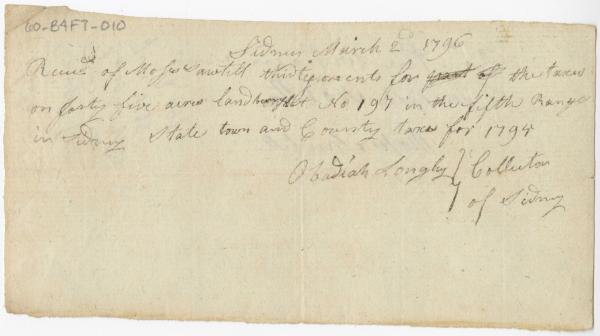 60-B4F7-010
Sidney March 2d 1796
Reced of Moses Sawtell thirty cents for part of the taxes
on forty five acres land lot No 197 in the fifth Range
in Sidney State town and County taxes for 1794
Obadiah Longley } Collector
of Sidney